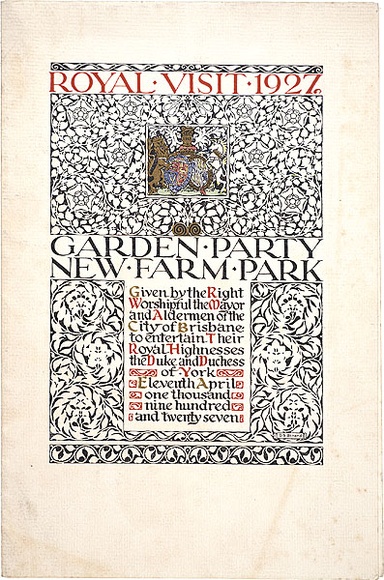 ROYAL·VISIT·1927.
GARDEN·PARTY
NEW·FARM·PARK
Given by the Right
Worshipful the Mayor
and Aldermen of the
City of Brisbane
to entertain Their
Royal Highnesses
the Duke and Duchess
of York
Eleventh April
one thousand
nine hundred
and twenty seven